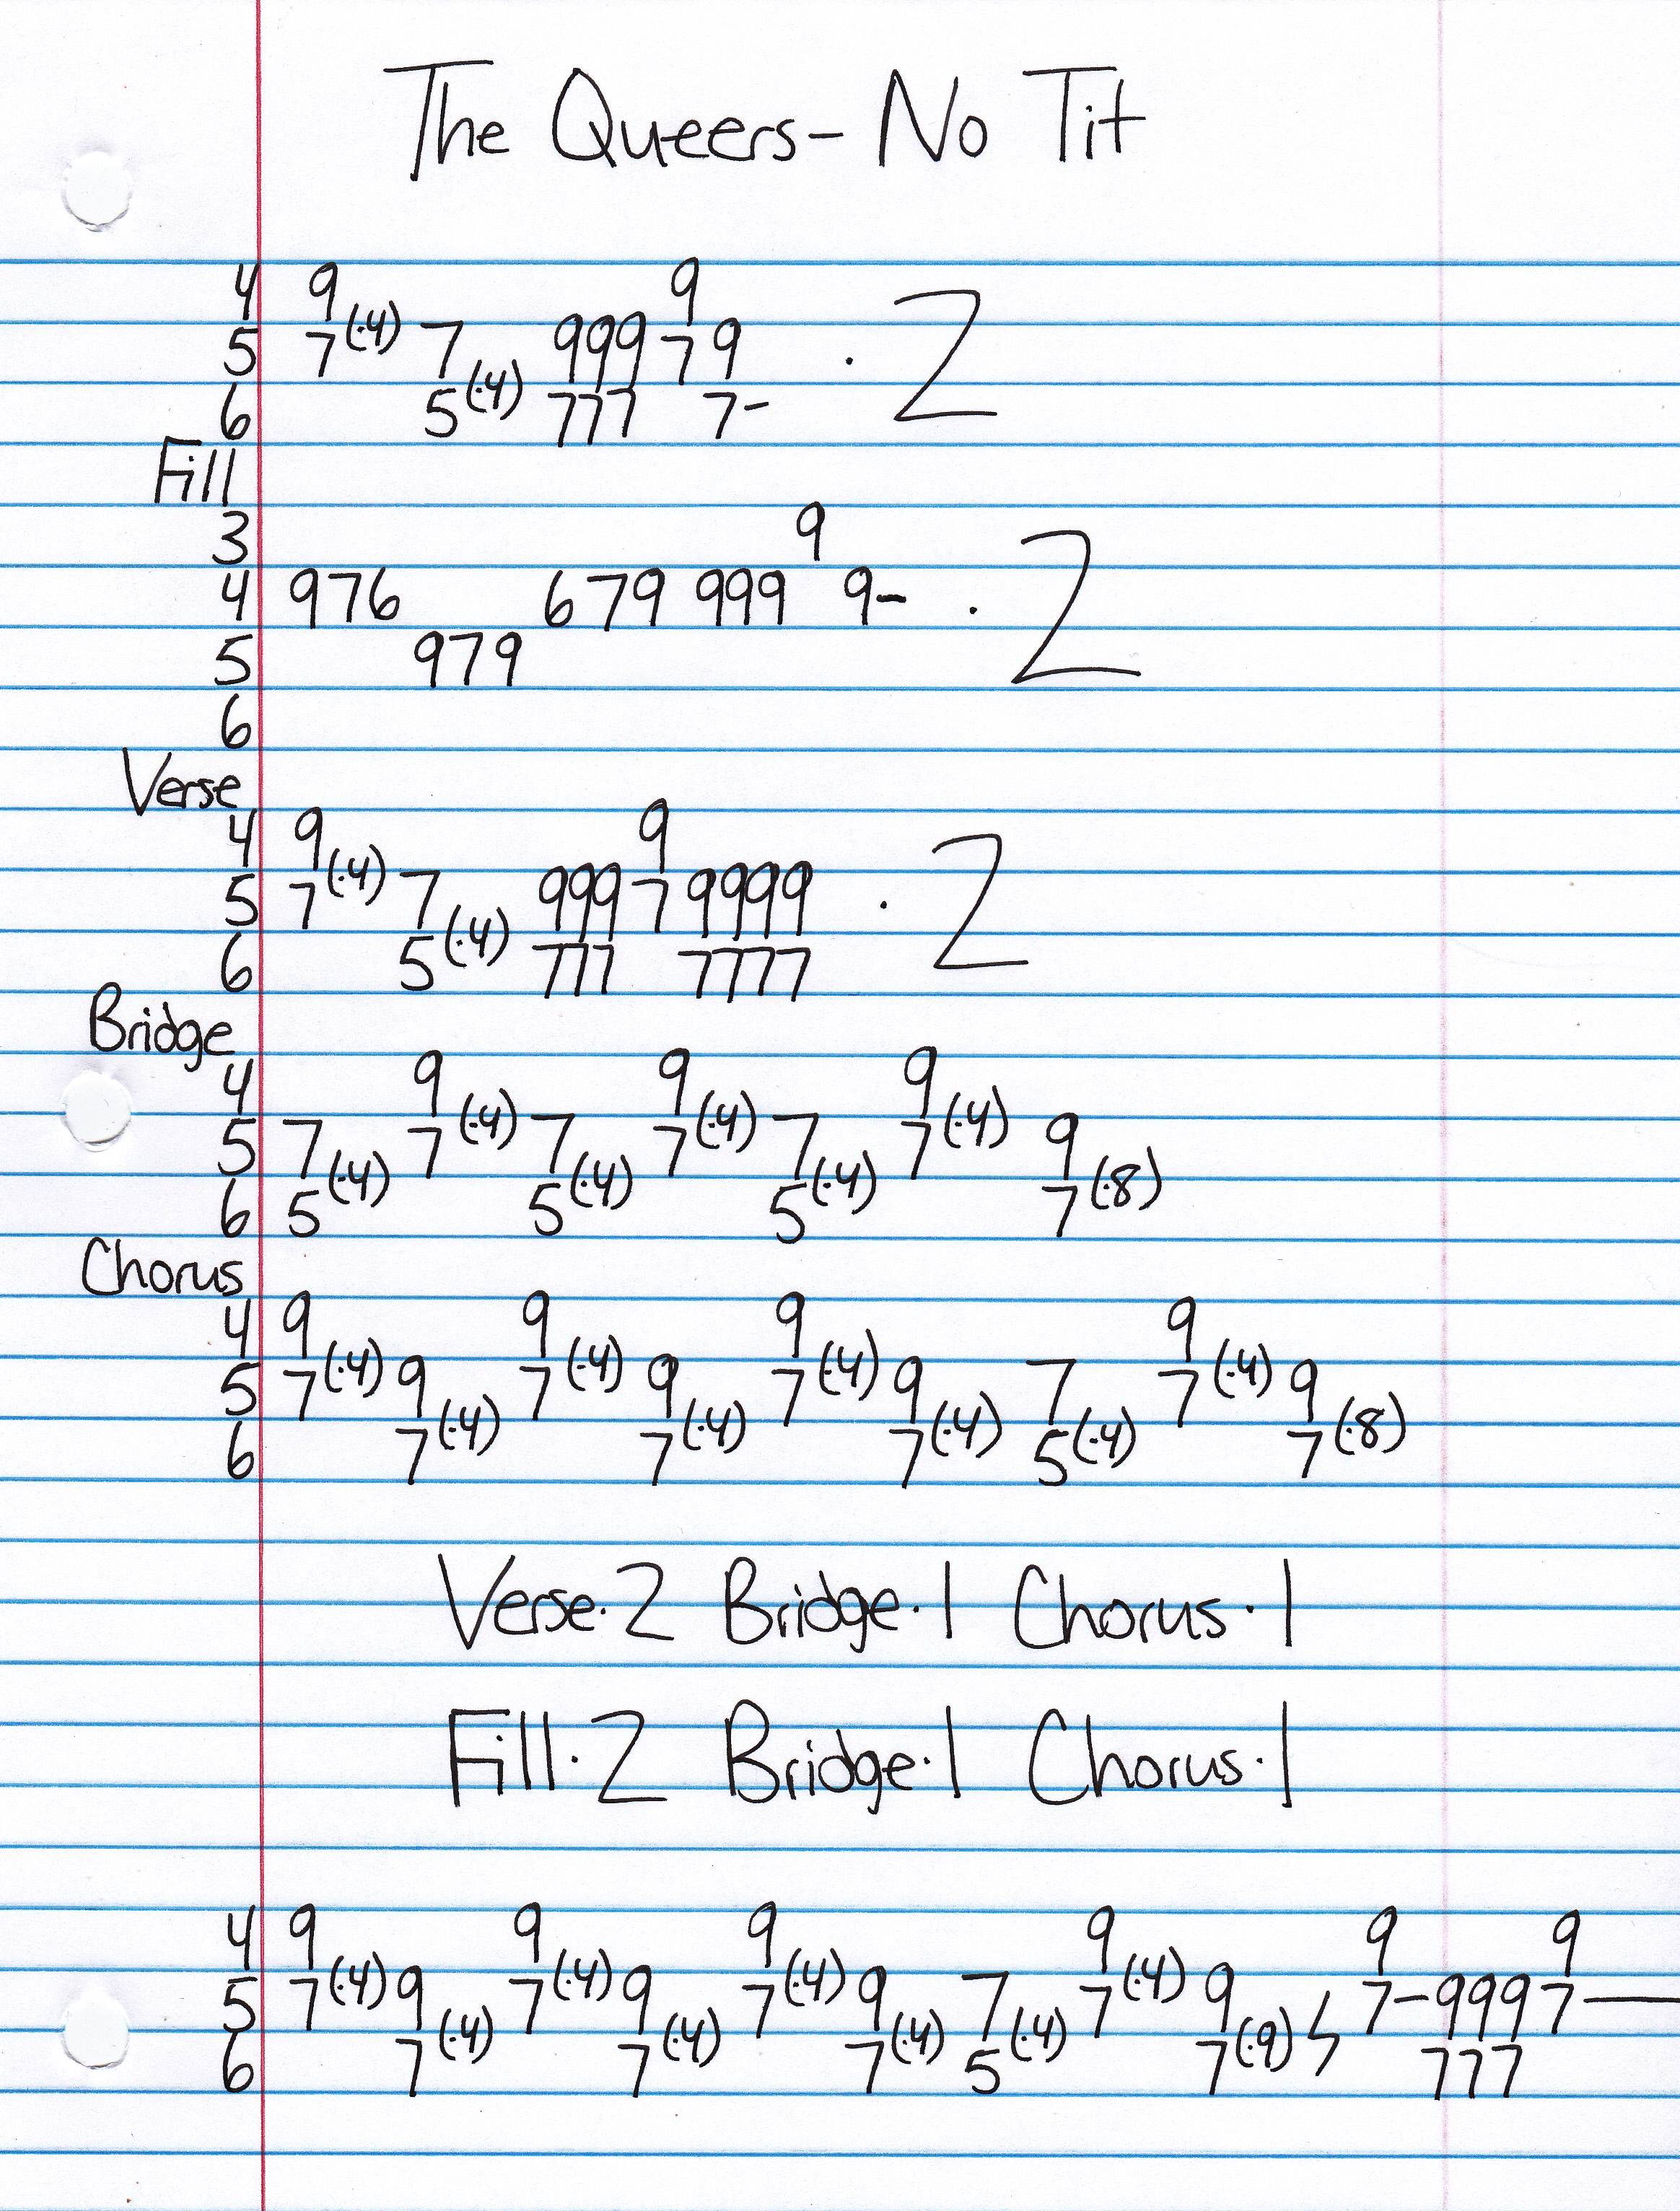 The Queers- No Tit
4 9 9
5 7(·4) 7 999 7 9 · 2
6 5(·4) 777 7-
Fill
3 9
4 976 679 999 9- · 2
5 979
6
Verse
4 9 9
5 7(·4) 7 999 7 9999 · 2
6 5(·4) 777 7777
Bridge
4 9 9 9
5 7 7(·4) 7 7(·4) 7 7(·4) 9
6 5(·4) 5(·4) 5(·4) 7(·8)
Chorus
4 9 9 9 9
5 7(·4) 9 7(·4) 9 7(·4) 9 7 7(·4) 9
6 7(·4) 7(·4) 7(·4) 5(·4) 7(·8)
Verse·2 Bridge·1 Chorus·1
Fill·2 Bridge·1 Chorus·1
4 9 9 9 9 9 9
5 7(·4) 9 7(·4) 9 7(·4) 9 7 7(·4) 9 7-999 7—
6 7(·4) 7(·4) 7(·4) 5(·4) 7(·9) 777